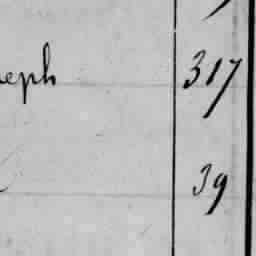 eph 317
39